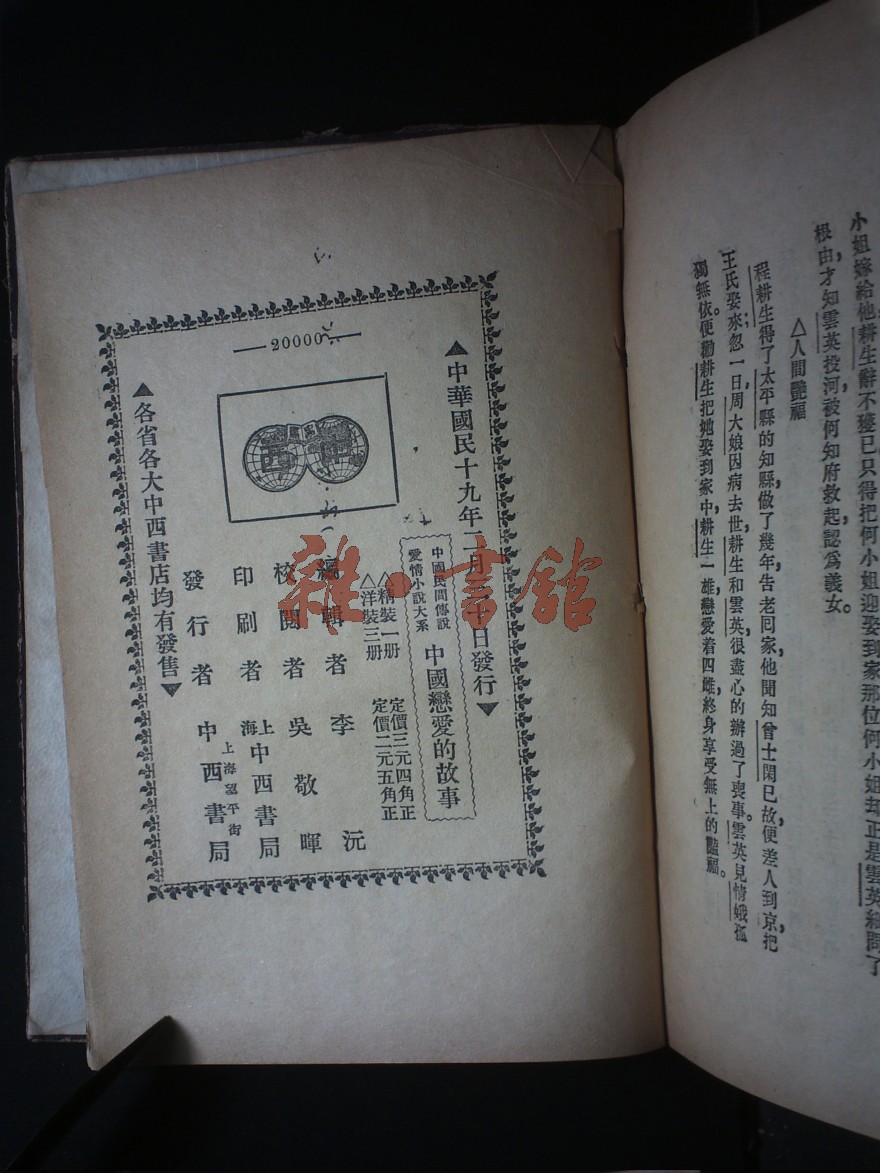 小姐嫁給他耕生辭不獲已只得把何小姐迎娶到家那位何小姐却正是雲英細問了
根由，才知雲英投河被何知府救起認爲義女。
△人間艷福
程耕生得了太平縣的知縣，做了幾年告老回家，他聞知曾士閑已故，便差人到京把
王氏娶來；忽一日，周大娘因病去世，耕生和雲英很盡心的辦過了喪事。雲英見情娥孤
獨無依，便勸耕生把她娶到家中，耕生一雄戀愛着四雌，終身享受無上的豔福。
▲中華國民十九年二月 十日發行▼
中國民間傳說
愛情小說大系
中國戀愛的故事
△精裝一册 定價三元四角正
△洋裝三册 定價二元五角正
20000
編輯者 李沅
校閱者 吳敬暉
印刷者 上海中西書局
發行者 上海望平街中西書局
▲各省各大中西書店均有發售▼
雜·書館